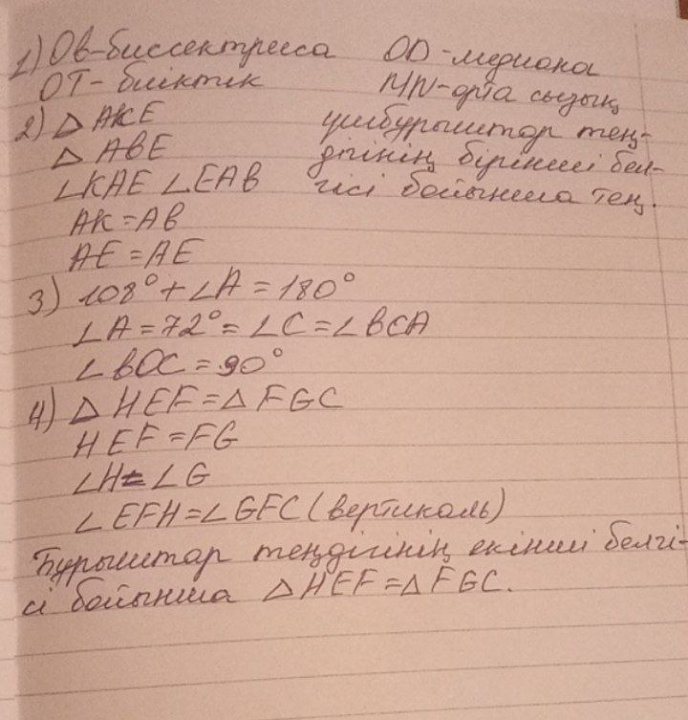 1) OB-биссектриса OD-медиана
OT-биіктік MN-орта сызық
2) △ AKE үшбұрыштар тең-
△ ABE дігінің бірінші бел-
∠KAE ∠EAB гісі бойынша тең.
AK=AB
AE=AE
3) 108°+∠A=180°
∠A=72°=∠C=∠BCA
∠BOC=90°
4) △ HEF=△ FGC
HEF=FG
∠H=∠G
∠EFH=∠GFC (вертикаль)
Бұрыштар теңдігінің екінші белгі-
сі бойынша △HEF=△FGC.